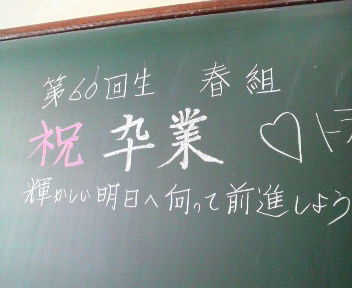 第60回生 春組
祝 卒業 ♡ト
輝かしい明日へ向って前進しよう